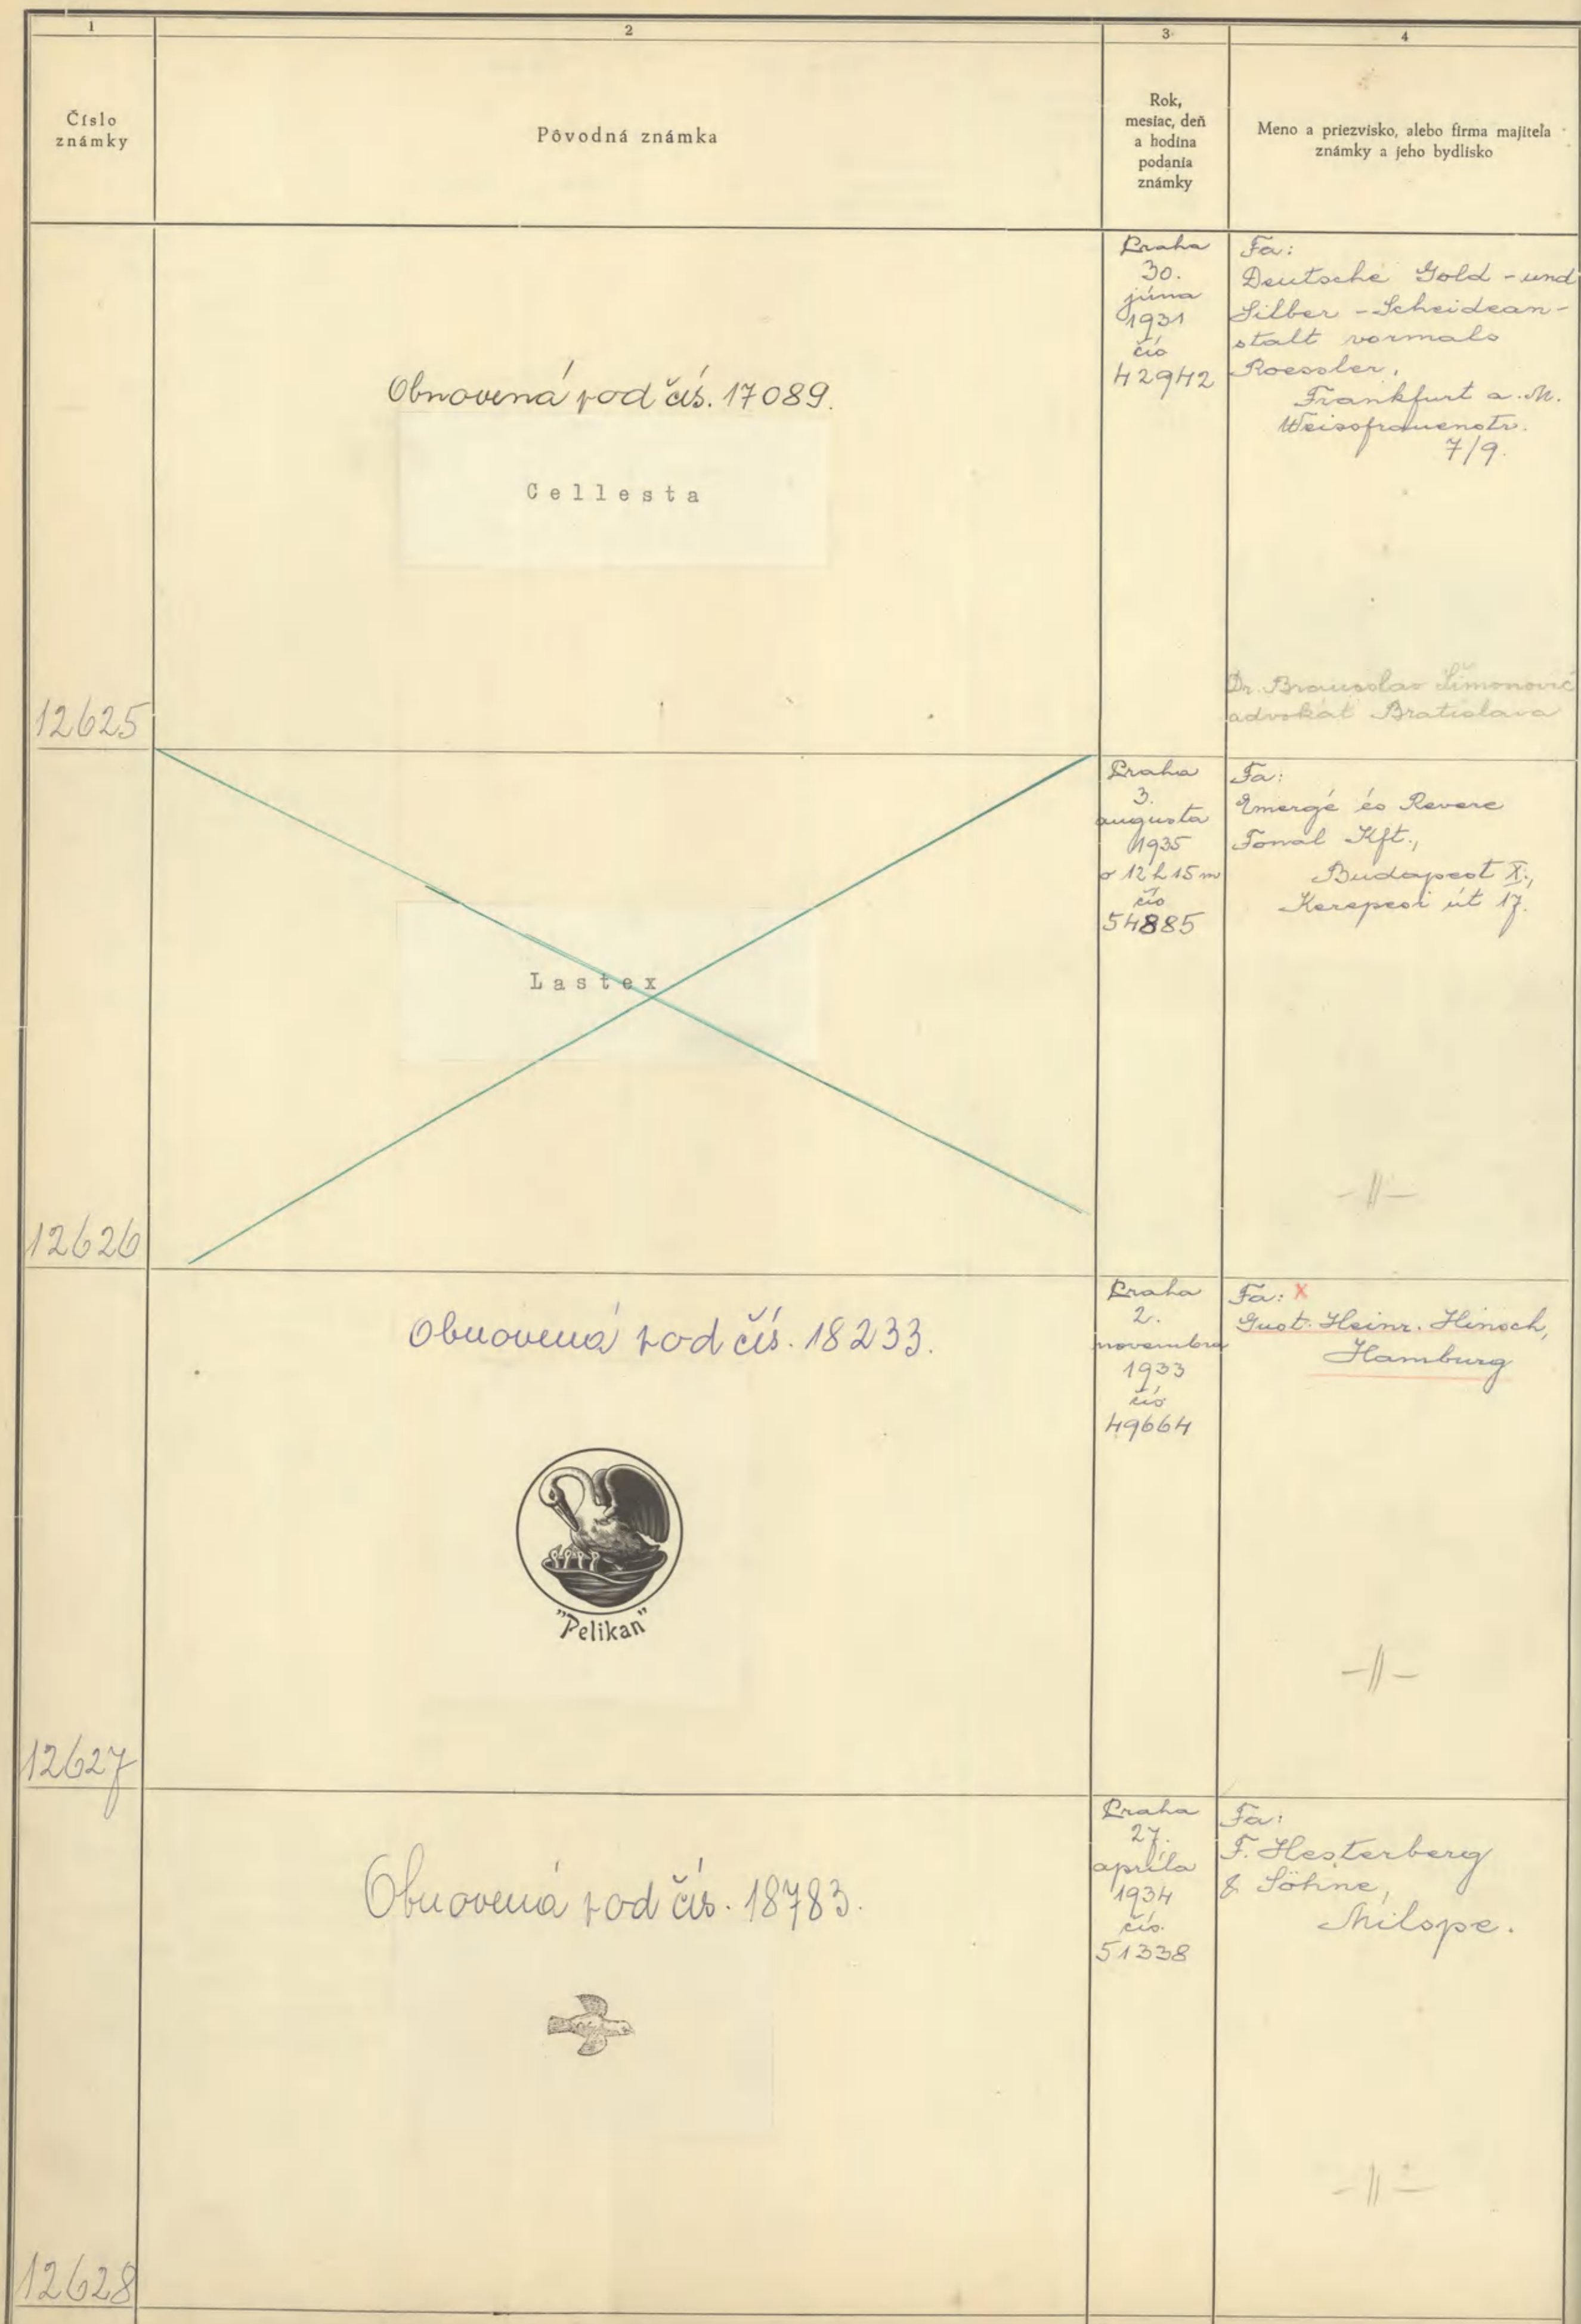 1
2
3
4
Číslo
známky
Pôvodná známka
Rok,
mesiac, deň
a hodina
podania
známky
Meno a priezvisko, alebo firma majiteľa
známky a jeho bydlisko
12625
Obnovená pod čís. 17089.
Cellesta
Praha
30.
júna
1931
čís
42942
Fa:
Deutsche Gold - und
Silber - Scheidean-
stalt vormals
Roessler,
Frankfurt a. M.
Weissfrauenstr.
7/9.
Dr. Šimonovič
advokát Bratislava
12626
Lastex
Praha
3.
augusta
1935
o 12 h 15 m
čís
54885
Fa:
Emergé és Revere
Fonal Kft.,
Budapest X.,
Kerepesi út 17.
-//-
12627
Obnovená pod čís. 18233.
"Pelikan"
Praha
2.
novembra
1933
čís
49664
Fa: x
Gust. Heinr. Hinsch,
Hamburg
-//-
12628
Obnovená pod čís. 18783.
Praha
27.
apríla
1934
čís.
51338
Fa:
F. Hesterberg
& Söhne,
Milspe.
-//-